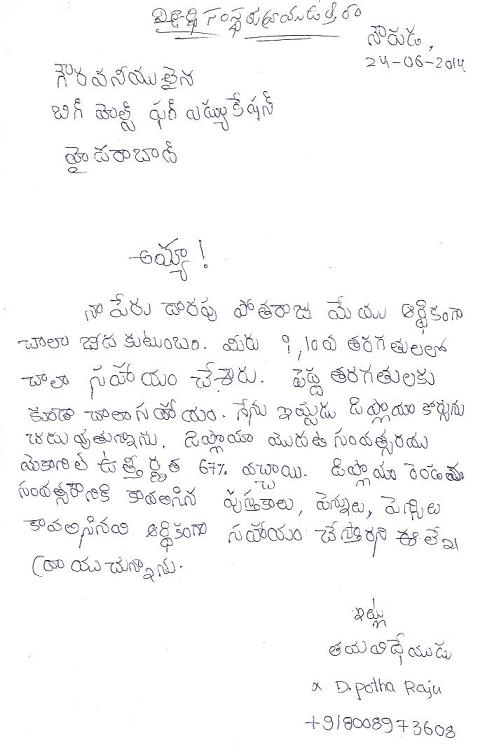 విద్యార్థి సంస్థకు రాయు ఉత్తరం
నౌరుడ,
24-06-2014
గౌరవనీయులైన
బిగ్ హెల్ప్ ఫర్ ఎడ్యుకేషన్
హైదరాబాద్
అయ్యా!
నా పేరు దారపు పోతరాజు మేము ఆర్థికంగా
చాలా బీద కుటుంబం. మీరు 9,10వ తరగతులలో
చాలా సహాయం చేశారు. పెద్ద తరగతులకు
కుడా చాలా సహాయం. నేను ఇప్పుడు డిప్లొమా కోర్సును
చదువుతున్నాను. డిప్లొమా మొదటి సంవత్సరము
మెకానికల్ ఉత్తీర్ణత 67% వచ్చాయి. డిప్లొమా రెండవ
సంవత్సరానికి కావలసిన పుస్తకాలు, పెన్నులు, పెన్సిల
కావలసినవి ఆర్థికంగా సహాయం చేస్తారని ఈ లేఖ
రాయుచున్నాను.
ఇట్లు
తమ విధేయుడు
x D.potha Raju
+918008973608